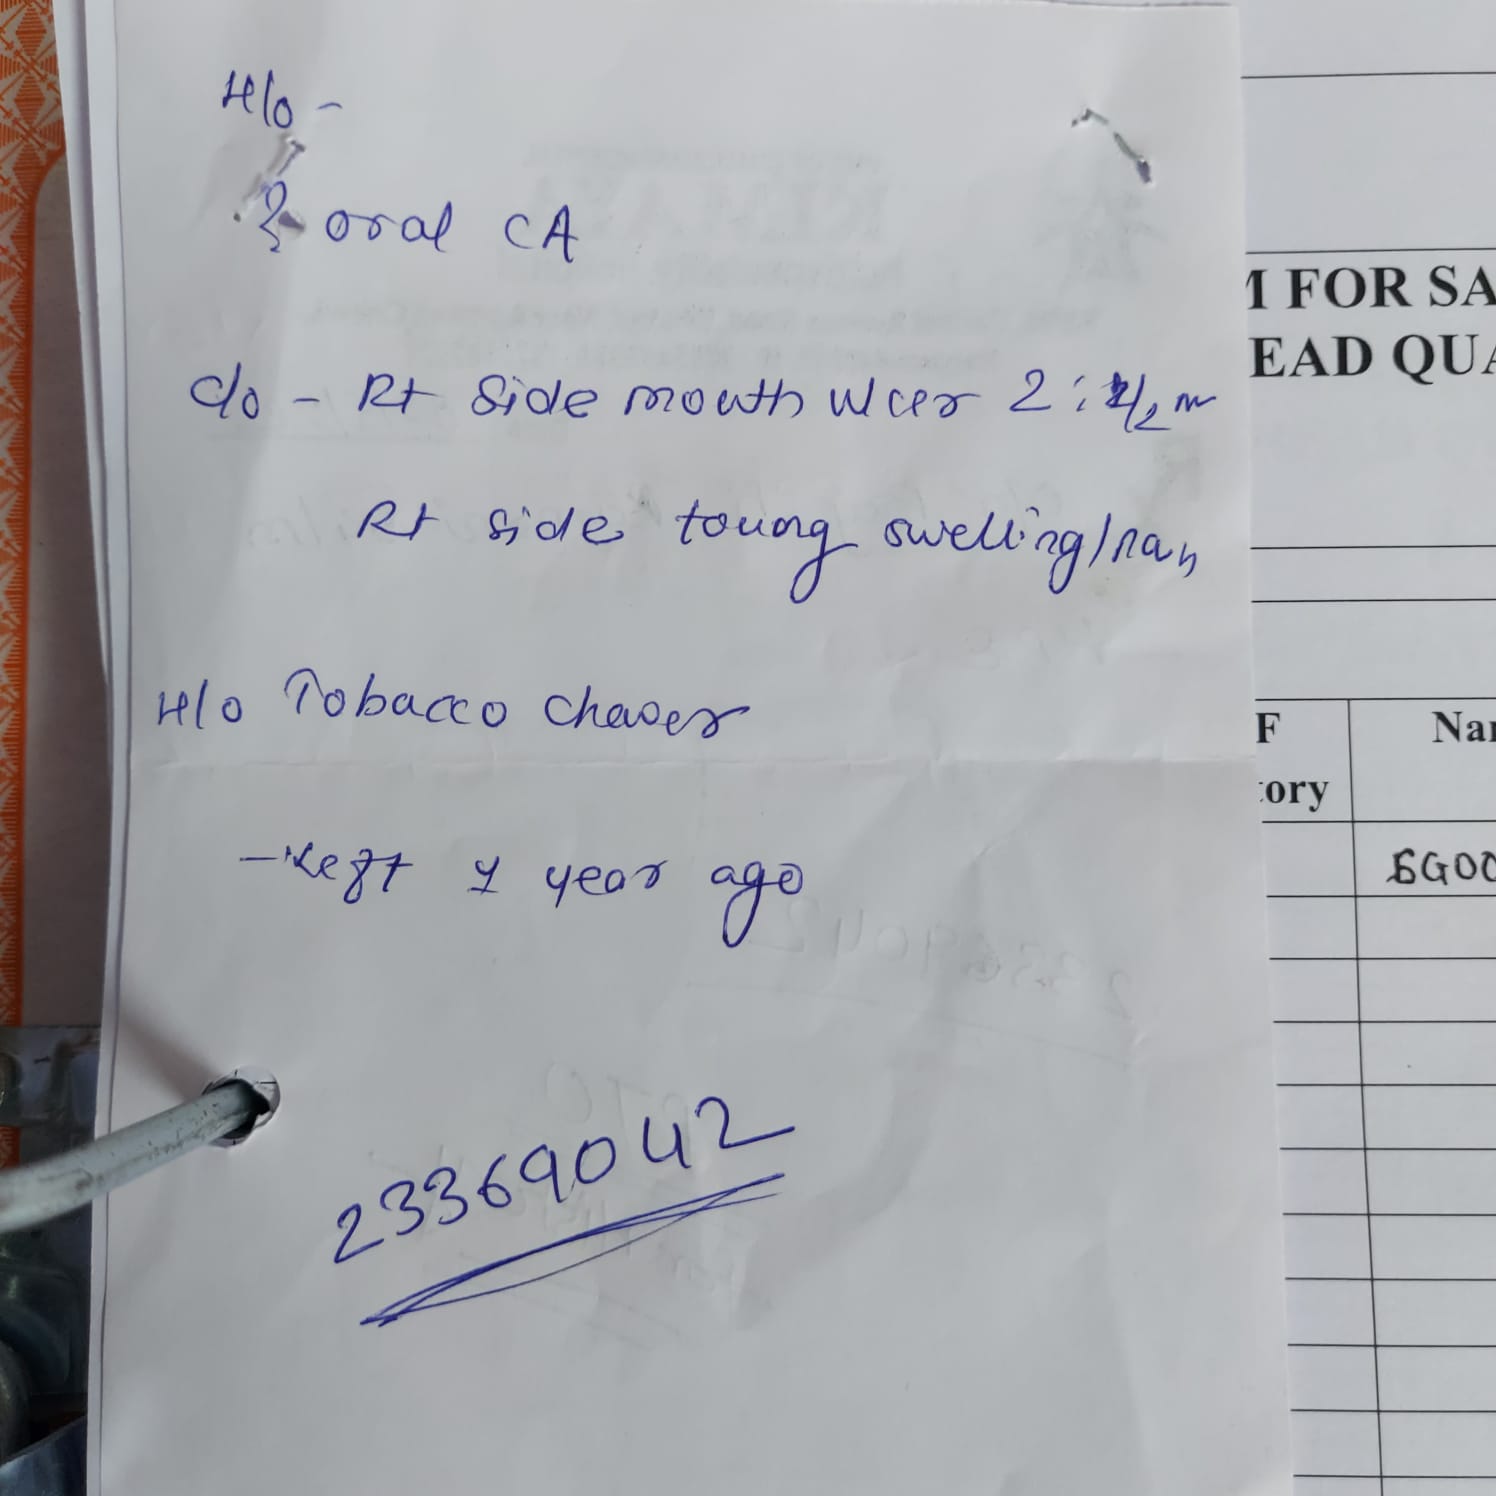 H/o -
? oral CA
c/o - Rt side mouth ulcer 2:
Rt side toung swelling/
H/o Tobacco chaver
- Left 1 year ago
23369042
M FOR SA
EAD QUA
F
tory
Nar